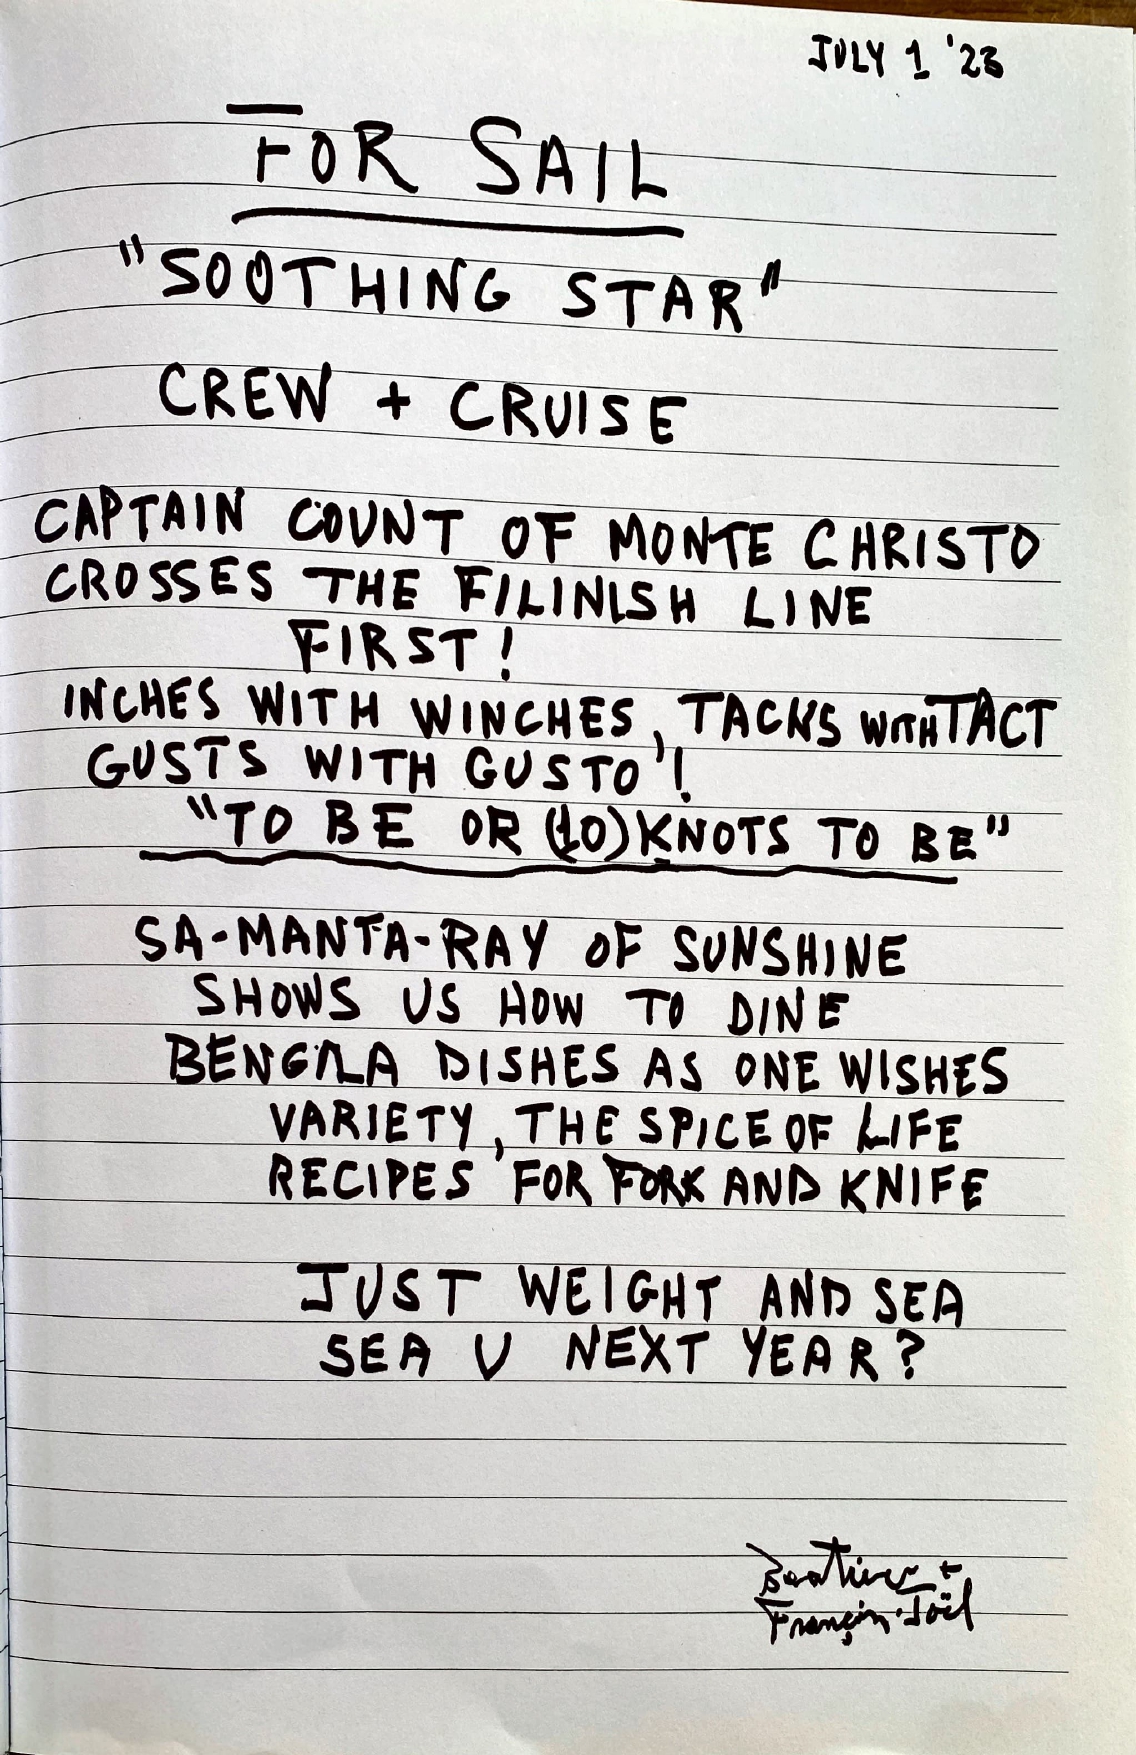 JULY 1 '23
FOR SAIL
"SOOTHING STAR"
CREW + CRUISE
CAPTAIN COUNT OF MONTE CHRISTO
CROSSES THE FILINISH LINE
FIRST!
INCHES WITH WINCHES, TACKS WITH TACT
GUSTS WITH GUSTO'!
"TO BE OR (10) KNOTS TO BE"
SA-MANTA-RAY OF SUNSHINE
SHOWS US HOW TO DINE
DISHES AS ONE WISHES
VARIETY, THE SPICE OF LIFE
RECIPES FOR FORK AND KNIFE
JUST WEIGHT AND SEA
SEA U NEXT YEAR?
+
Joël